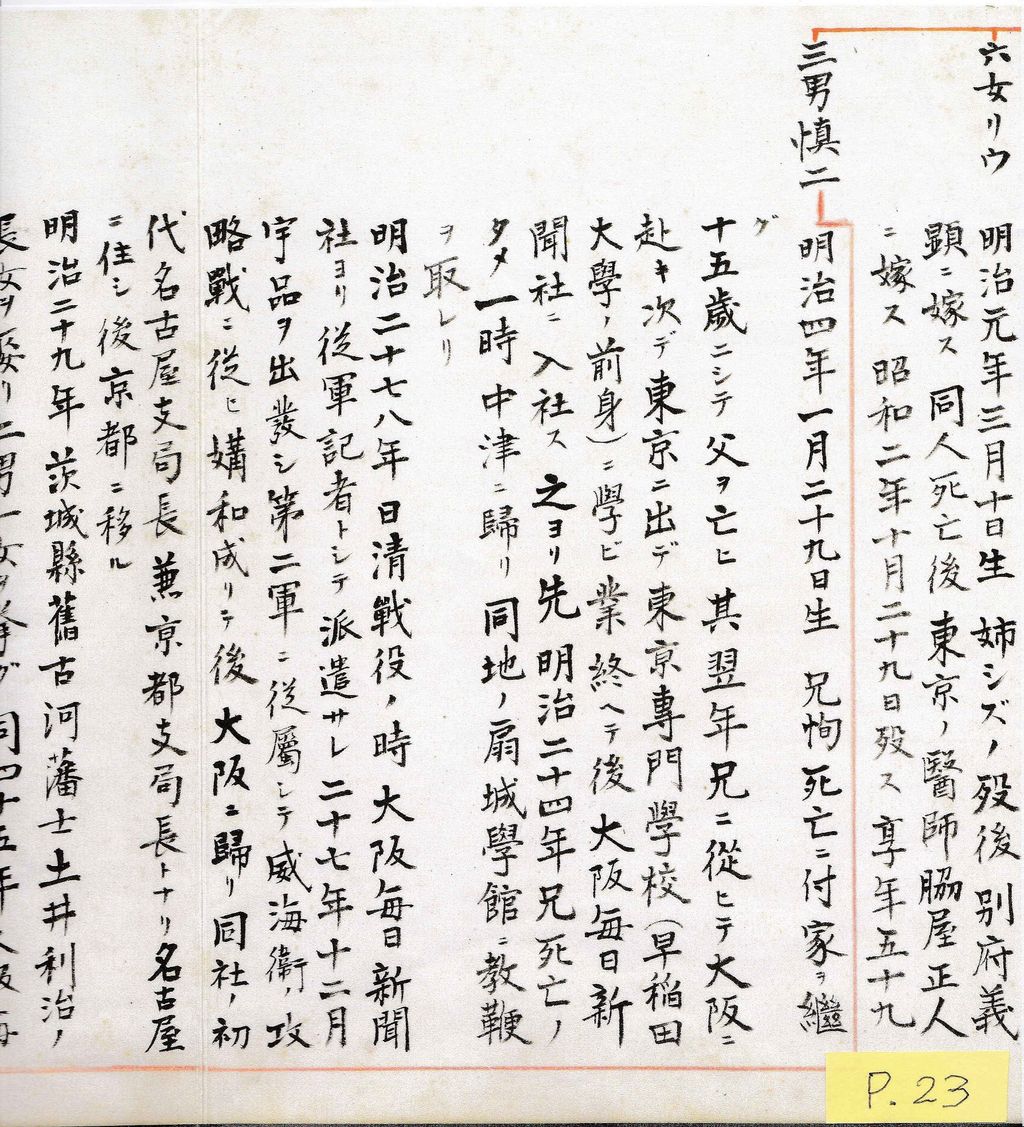 六女リウ
明治元年三月十日生 姉シズノ歿後別府義
顕ニ嫁ス 同人死亡後東京ノ醫師脇屋正人
ニ嫁ス 昭和二年十月二十九日歿ス 享年五十九
三男慎二
明治四年一月二十九日生 兄恂死亡ニ付家ヲ繼
グ
十五歳ニシテ父ヲ亡ヒ其翌年兄ニ從ヒテ大阪ニ
赴キ次デ東京ニ出デ東京專門學校(早稲田
大學ノ前身)ニ學ビ業終ヘテ後大阪毎日新
聞社ニ入社ス 之ヨリ先明治二十四年兄死亡ノ
タメ一時中津ニ歸リ同地ノ扇城學館ニ教鞭
ヲ取レリ
明治二十七八年日清戰役ノ時大阪毎日新聞
社ヨリ従軍記者トシテ派遣サレ二十七年十二月
宇品ヲ出發シ第二軍ニ從屬シテ威海衛ノ攻
略戰ニ從ヒ媾和成リテ後大阪ニ歸リ同社ノ初
代名古屋支局長兼京都支局長トナリ名古屋
ニ住シ後京都ニ移ル
明治二十九年茨城縣舊古河藩士土井利治ノ
長女ヲ娶リ二男一女ヲ挙グ 同四十五年大阪毎
P.23